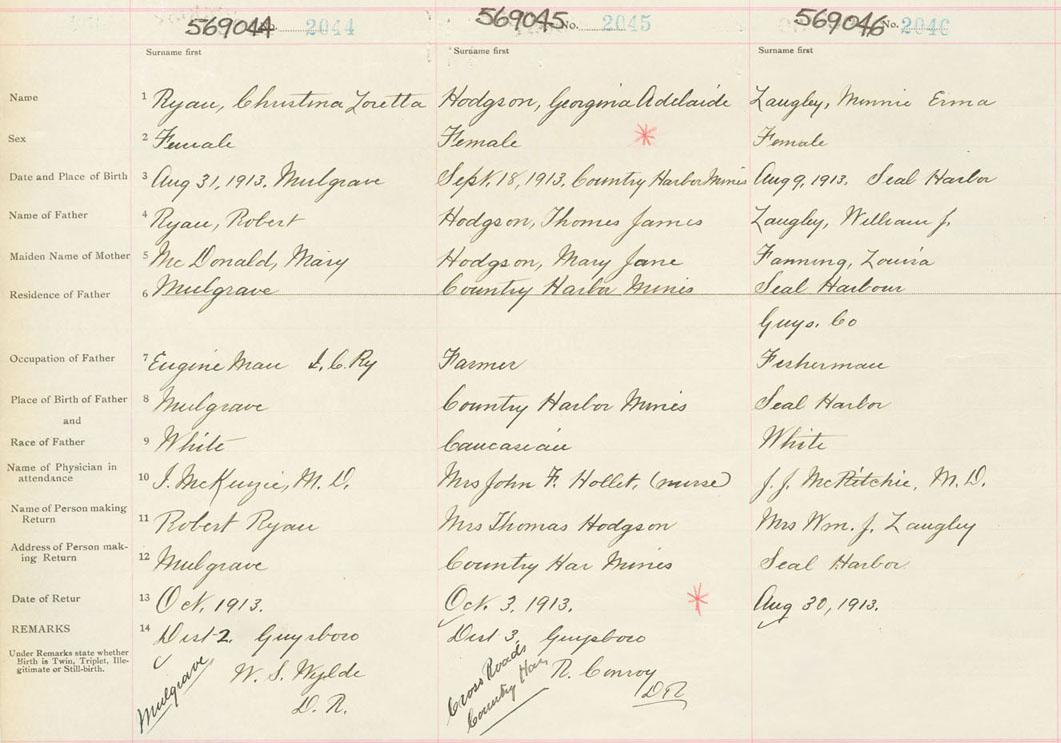 569044 No. 2044 569045 No. 2045 569046 No. 2046
Surname first Surname first Surname first
Name 1 Ryan, Christina Loretta Hodgson, Georgina Adelaide Langley, Minnie Erma
Sex 2 Female Female Female
Date and Place of Birth 3 Aug 31, 1913. Mulgrave Sept. 18, 1913. Country Harbor Mines Aug 9, 1913. Seal Harbor
Name of Father 4 Ryan, Robert Hodgson, Thomas James Langley, William J.
Maiden Name of Mother 5 McDonald, Mary Hodgson, Mary Jane Fanning, Louisa
Residence of Father 6 Mulgrave Country Harbor Mines Seal Harbour
Guys. Co
Occupation of Father 7 Engine Man I.C.Ry Farmer Fisherman
Place of Birth of Father 8 Mulgrave Country Harbor Mines Seal Harbor
and
Race of Father 9 White Caucasian White
Name of Physician in
attendance 10 McKenzie, M.D. Mrs John F. Hollet, (nurse) J.J. McRitchie, M.D.
Name of Person making
Return 11 Robert Ryan Mrs Thomas Hodgson Mrs Wm. J. Langley
Address of Person mak-
ing Return 12 Mulgrave Country Har Mines Seal Harbor
Date of Retur 13 Oct, 1913. Oct. 3, 1913. Aug 30, 1913.
REMARKS 14 Dist 2. Guysboro Dist 3, Guysboro
Under Remarks state whether
Birth is Twin, Triplet, Ille-
gitimate or Still-birth.
Mulgrave W. S. Wylde Cross Roads Country Har R. Conroy
D.R. D.R